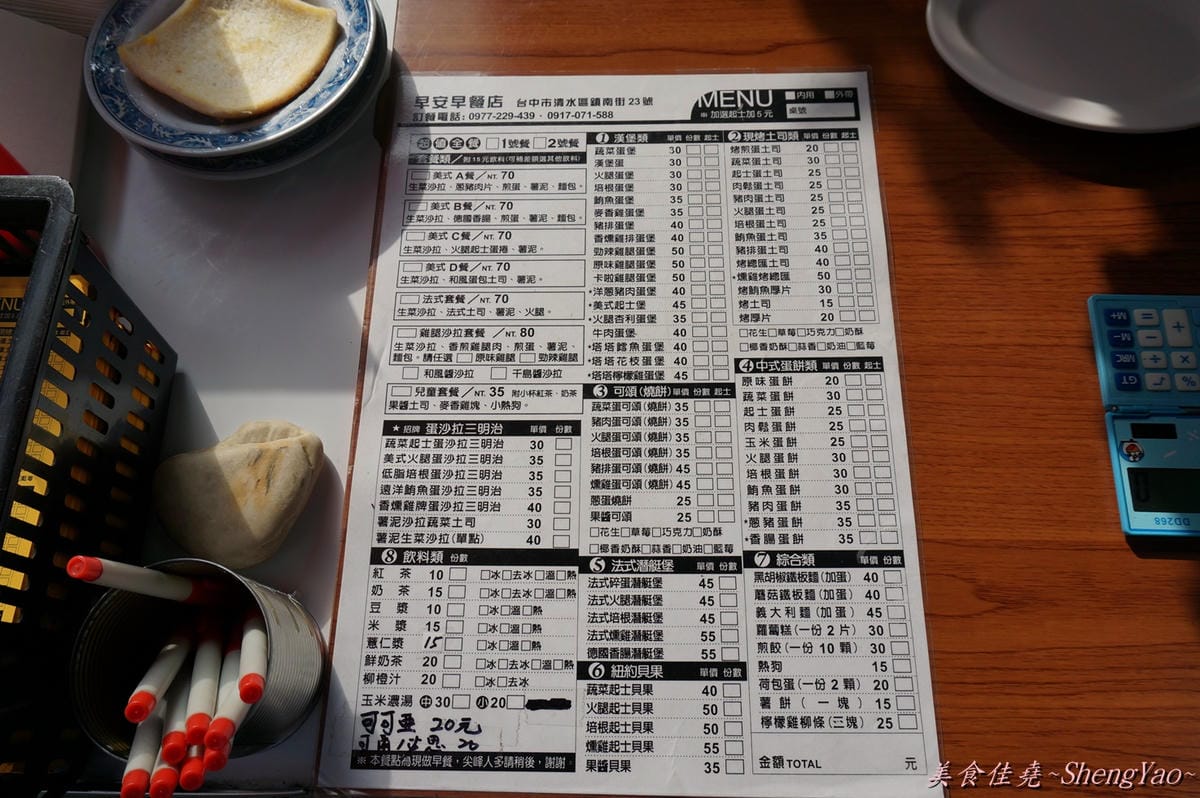 早安早餐店 台中市清水區鎮南街23號
訂餐電話: 0977-229-439 · 0917-071-588
MENU
※ 加選起士加5元
內用 外帶
桌號
超值全餐 □1號餐 □2號餐
套餐類／附15元飲料(可補差額選其他飲料)
□美式A餐／NT. 70
生菜沙拉、蔥豬肉片、煎蛋、薯泥、麵包。
□美式B餐／NT. 70
生菜沙拉、德國香腸、煎蛋、薯泥、麵包。
□美式C餐／NT. 70
生菜沙拉、火腿起士蛋捲、薯泥。
□美式D餐／NT. 70
生菜沙拉、和風蛋包土司、薯泥。
□法式套餐／NT. 70
生菜沙拉、法式土司、薯泥、火腿。
□雞腿沙拉套餐／NT. 80
生菜沙拉、香煎雞腿肉、煎蛋、薯泥、
麵包。請任選 □原味雞腿 □勁辣雞腿
□和風醬沙拉 □千島醬沙拉
□兒童套餐／NT. 35 附小杯紅茶、奶茶
果醬土司、麥香雞塊、小熱狗。
★招牌 蛋沙拉三明治 單價 份數
蔬菜起士蛋沙拉三明治 30
美式火腿蛋沙拉三明治 35
低脂培根蛋沙拉三明治 35
遠洋鮪魚蛋沙拉三明治 35
香燻雞牌蛋沙拉三明治 40
薯泥沙拉蔬菜土司 30
薯泥生菜沙拉(單點) 40
8 飲料類 份數
紅茶 10 □冰□去冰□溫□熱
奶茶 15 □冰□去冰□溫□熱
豆漿 10 □冰□溫□熱
米漿 15 □冰□溫□熱
薏仁漿 15 □冰□溫□熱
鮮奶茶 20 □冰□去冰□溫□熱
柳橙汁 20 □冰□去冰
玉米濃湯 中30 小20
可可亞 20元
※ 本餐點為現做早餐，尖峰人多請稍後，謝謝!
1 漢堡類 單價 份數 起士
蔬菜蛋堡 30
漢堡蛋 30
火腿蛋堡 30
培根蛋堡 30
鮪魚蛋堡 35
麥香雞蛋堡 35
豬排蛋堡 40
香燻雞排蛋堡 40
勁辣雞腿蛋堡 50
原味雞腿蛋堡 50
卡啦雞腿蛋堡 50
*洋蔥豬肉蛋堡 40
*美式起士堡 45
*火腿杏利蛋堡 35
牛肉蛋堡 40
*塔塔鱈魚蛋堡 40
*塔塔花枝蛋堡 40
*塔塔檸檬雞蛋堡 45
3 可頌(燒餅) 單價 份數 起士
蔬菜蛋可頌(燒餅) 35
豬肉蛋可頌(燒餅) 35
火腿蛋可頌(燒餅) 35
培根蛋可頌(燒餅) 35
豬排蛋可頌(燒餅) 45
燻雞蛋可頌(燒餅) 45
蔥蛋燒餅 25
果醬可頌 25
□花生□草莓□巧克力□奶酥
□椰香奶酥□蒜香□奶油□藍莓
5 法式潛艇堡 單價 份數
法式碎蛋潛艇堡 45
法式火腿潛艇堡 45
法式培根潛艇堡 45
法式燻雞潛艇堡 55
德國香腸潛艇堡 55
6 紐約貝果 單價 份數
蔬菜起士貝果 40
火腿起士貝果 50
培根起士貝果 50
燻雞起士貝果 55
果醬貝果 35
2 現烤土司類 單價 份數 起士
烤煎蛋土司 20
蔬菜蛋土司 30
起士蛋土司 25
肉鬆蛋土司 25
豬肉蛋土司 25
火腿蛋土司 25
培根蛋土司 25
鮪魚蛋土司 35
豬排蛋土司 40
烤總匯土司 40
*燻雞烤總匯 50
烤鮪魚厚片 30
烤土司 15
烤厚片 20
□花生□草莓□巧克力□奶酥
□椰香奶酥□蒜香□奶油□藍莓
4 中式蛋餅類 單價 份數 起士
原味蛋餅 20
蔬菜蛋餅 30
起士蛋餅 25
肉鬆蛋餅 25
玉米蛋餅 25
火腿蛋餅 30
培根蛋餅 30
鮪魚蛋餅 30
豬肉蛋餅 35
*蔥豬蛋餅 35
*香腸蛋餅 35
7 綜合類 單價 份數
黑胡椒鐵板麵(加蛋) 40
蘑菇鐵板麵(加蛋) 40
義大利麵(加蛋) 45
蘿蔔糕(一份2片) 30
煎餃(一份10顆) 30
熱狗 15
荷包蛋(一份2顆) 20
薯餅(一塊) 15
檸檬雞柳條(三塊) 25
金額TOTAL 元
DD268
GT
MRC
M-
M+
美食佳堯~ShengYao~